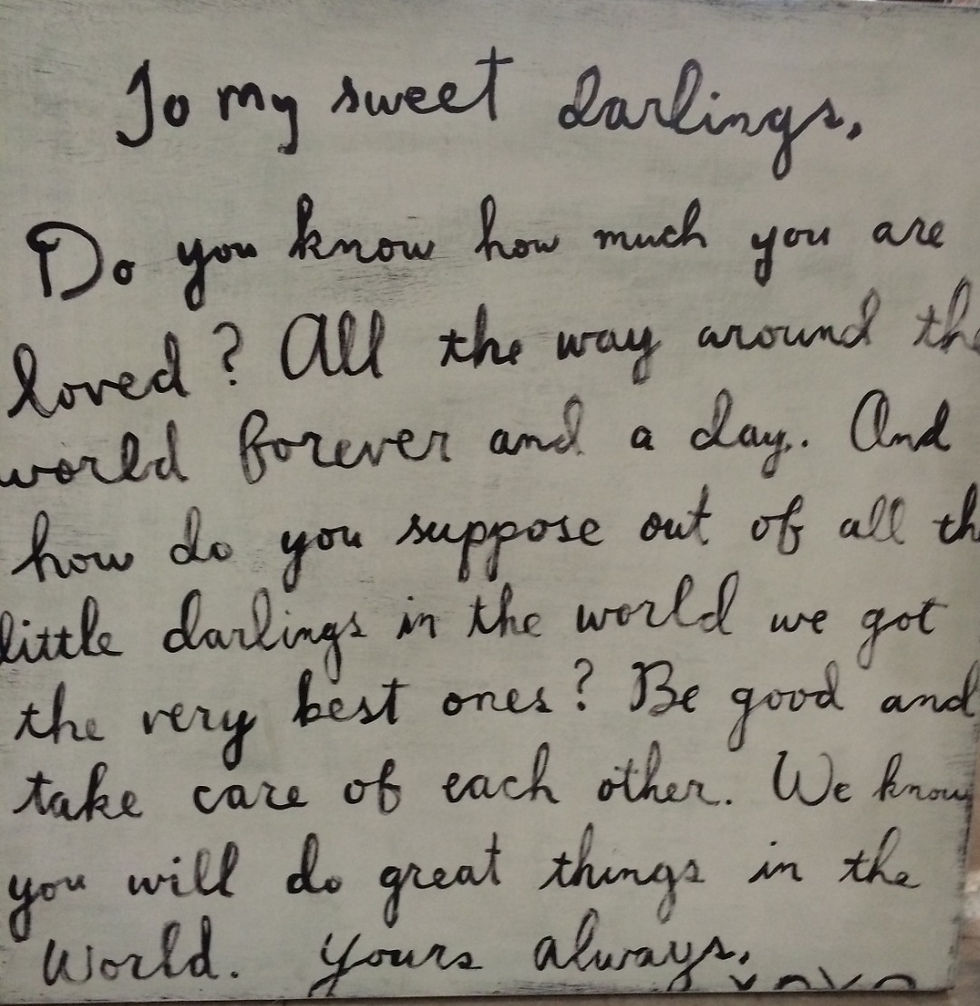 To my sweet darlings,
Do you know how much you are
loved? All the way around the
world forever and a day. And
how do you suppose out of all th
little darlings in the world we got
the very best ones? Be good and
take care of each other. We know
you will do great things in the
World. Yours always,